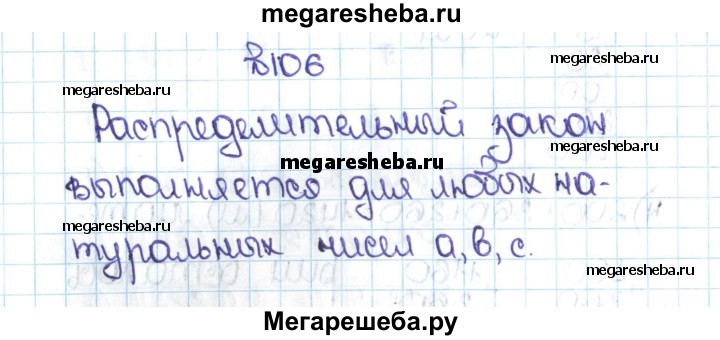 megaresheba.ru
№106
megaresheba.ru megaresheba.ru
Распределительный закон
megaresheba.ru
выполняется для любых на-
megaresheba.ru megaresheba.ru
туральных чисел a, b, c.
Мегарешеба.ру